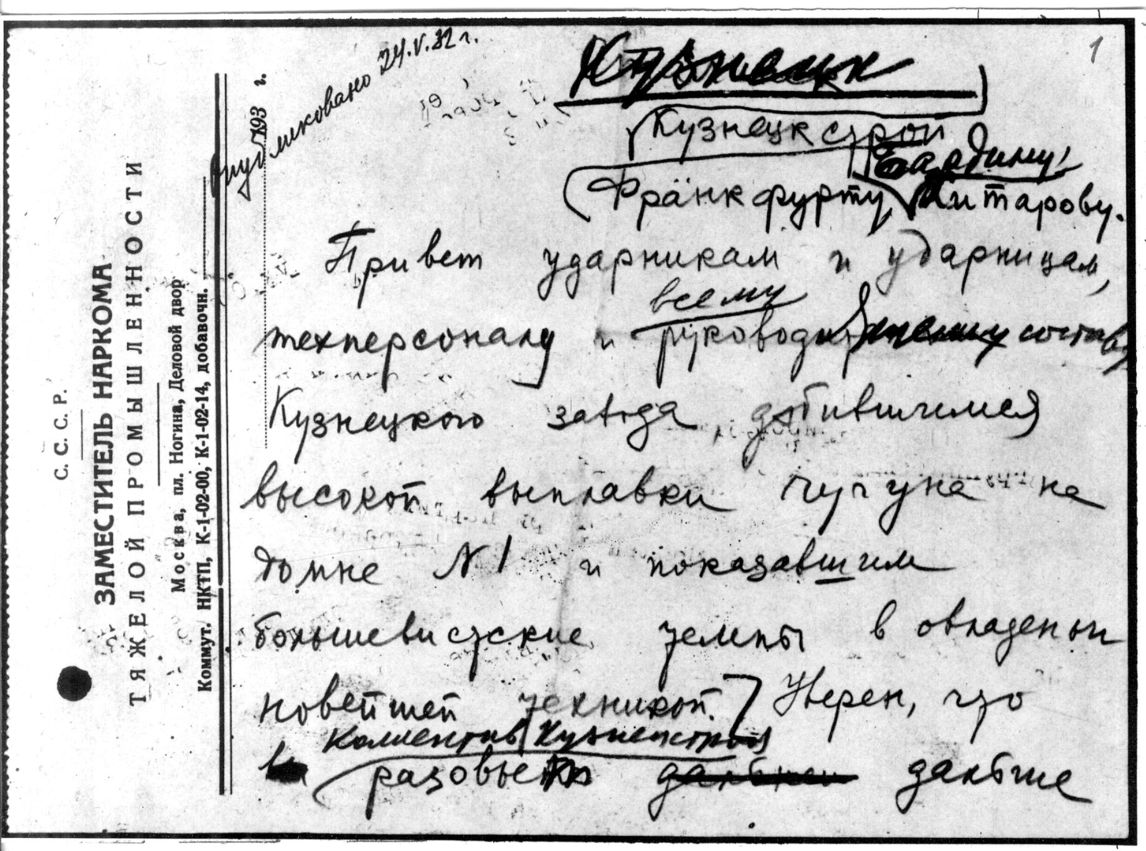 С. С. С. Р.
ЗАМЕСТИТЕЛЬ НАРКОМА
ТЯЖЕЛОЙ ПРОМЫШЛЕННОСТИ
Москва, пл. Ногина, Деловой двор
Коммут. НКТП, К-1-02-00, К-1-02-14, добавочн.
193 г.
Опубликовано 24.V.32 г.
1
Кузнецк
Кузнецкстрой
Бардину,
Франкфурту, Хитарову.
Привет ударникам и ударницам,
всему
техперсоналу и руководящему составу
Кузнецкого завода добившимся
высокой выплавки чугуна на
домне № 1 и показавшим
большевистские темпы в овладеньи
новейшей техникой. Уверен, что
коллектив Кузнецкстроя
разовьет дальше